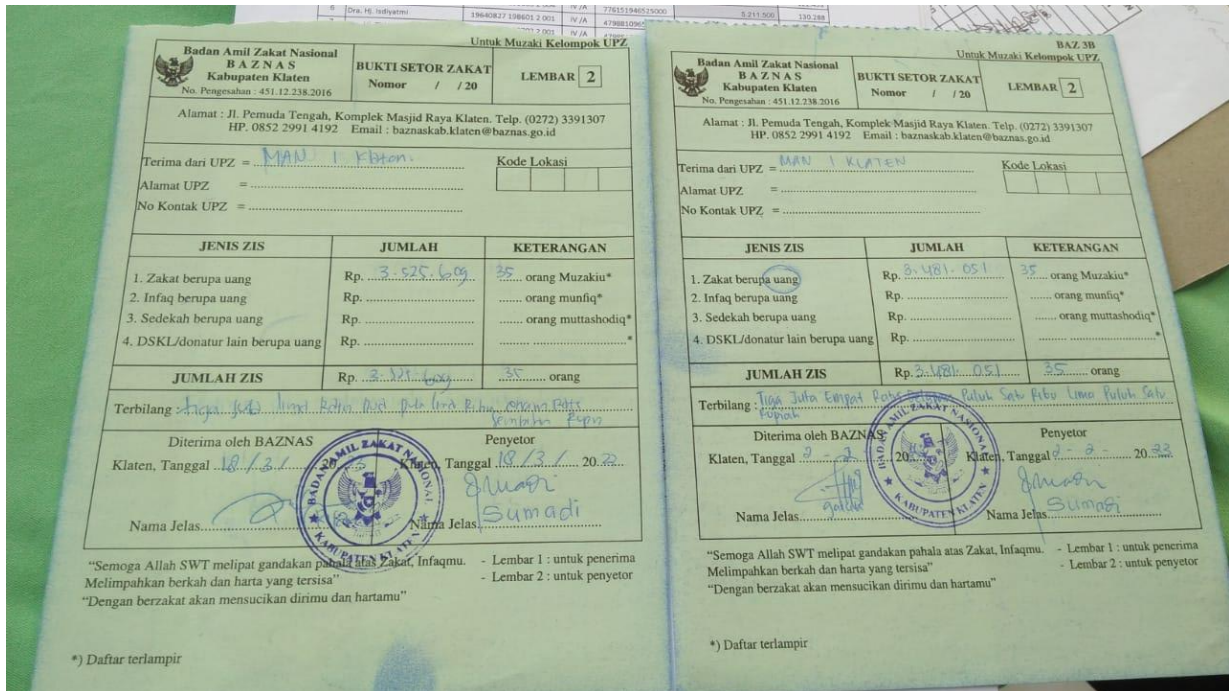 Dra. Hj. Isdiyatmi
19640827 198601 2 001 IV /A 776151946525000 5.211.500 130.288
IV /A
Untuk Muzaki Kelompok UPZ
Badan Amil Zakat Nasional
BAZNAS
Kabupaten Klaten
No. Pengesahan : 451.12.238.2016
BUKTI SETOR ZAKAT
Nomor / / 20
LEMBAR 2
Alamat : Jl. Pemuda Tengah, Komplek Masjid Raya Klaten. Telp. (0272) 3391307
HP. 0852 2991 4192 Email : baznaskab.klaten@baznas.go.id
Terima dari UPZ = MAN 1 Klaten.
Kode Lokasi
Alamat UPZ =
No Kontak UPZ =
JENIS ZIS JUMLAH KETERANGAN
1. Zakat berupa uang Rp. 3.525.609 35 orang Muzakiu*
2. Infaq berupa uang Rp. orang munfiq*
3. Sedekah berupa uang Rp. orang muttashodiq*
4. DSKL/donatur lain berupa uang Rp. *
JUMLAH ZIS Rp. 3.525.609 35 orang
Terbilang : Tiga juta lima ratus dua puluh lima ribu enam ratus
sembilan rupiah
Diterima oleh BAZNAS Penyetor
Klaten, Tanggal 18/3/ 20 Klaten, Tanggal 18/3/ 20
BADAN AMIL ZAKAT NASIONAL
KABUPATEN KLATEN
Nama Jelas Nama Jelas Sumadi
"Semoga Allah SWT melipat gandakan pahala atas Zakat, Infaqmu. - Lembar 1 : untuk penerima
Melimpahkan berkah dan harta yang tersisa" - Lembar 2 : untuk penyetor
"Dengan berzakat akan mensucikan dirimu dan hartamu"
*) Daftar terlampir
BAZ 3B
Untuk Muzaki Kelompok UPZ
Badan Amil Zakat Nasional
BAZNAS
Kabupaten Klaten
No. Pengesahan : 451.12.238.2016
BUKTI SETOR ZAKAT
Nomor / / 20
LEMBAR 2
Alamat : Jl. Pemuda Tengah, Komplek Masjid Raya Klaten. Telp. (0272) 3391307
HP. 0852 2991 4192 Email : baznaskab.klaten@baznas.go.id
Terima dari UPZ = MAN 1 KLATEN
Kode Lokasi
Alamat UPZ =
No Kontak UPZ =
JENIS ZIS JUMLAH KETERANGAN
1. Zakat berupa uang Rp. 3.481.051 35 orang Muzakiu*
2. Infaq berupa uang Rp. orang munfiq*
3. Sedekah berupa uang Rp. orang muttashodiq*
4. DSKL/donatur lain berupa uang Rp. *
JUMLAH ZIS Rp. 3.481.051 35 orang
Terbilang : Tiga Juta Empat Ratus Delapan Puluh Satu Ribu Lima Puluh Satu
Rupiah
Diterima oleh BAZNAS Penyetor
Klaten, Tanggal 2 - 2 20 Klaten, Tanggal 2 - 2 - 20 23
BADAN AMIL ZAKAT NASIONAL
KABUPATEN KLATEN
Nama Jelas Nama Jelas Sumadi
"Semoga Allah SWT melipat gandakan pahala atas Zakat, Infaqmu. - Lembar 1 : untuk penerima
Melimpahkan berkah dan harta yang tersisa" - Lembar 2 : untuk penyetor
"Dengan berzakat akan mensucikan dirimu dan hartamu"
*) Daftar terlampir